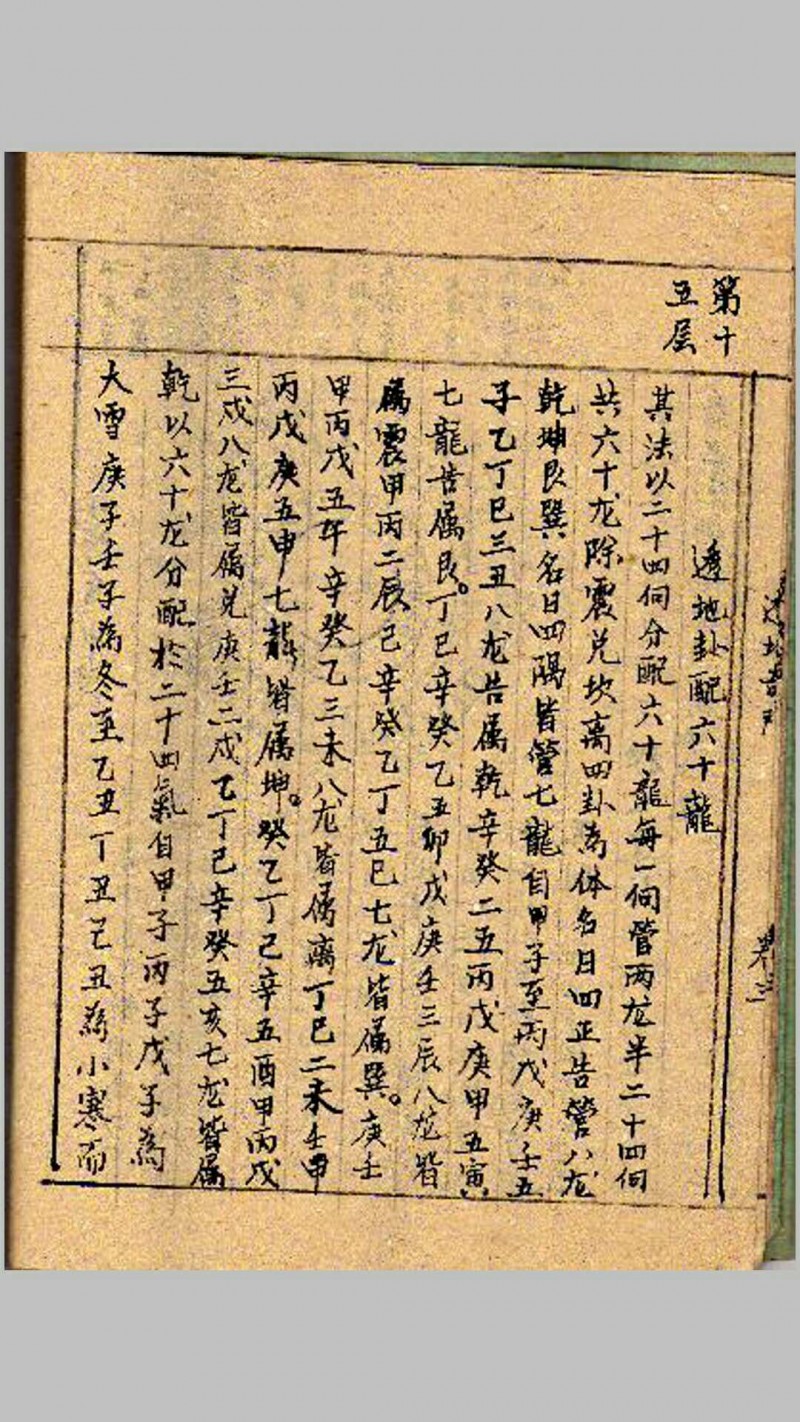 第十
五层
透地卦配六十龍
其法以二十四向分配六十龍每一向管两龙半二十四向
共六十龙除震兑坎离四卦为体名曰四正告管八龙
乾坤艮巽名曰四隅皆管七龍自甲子至丙戊庚壬五
子乙丁巳三丑八龙告属乾辛癸二五丙戊庚甲五寅
七龍告属艮。丁巳辛癸乙五卯戊庚壬三辰八龙皆
属震甲丙二辰己辛癸乙丁五巳七龙皆属巽。庚壬
甲丙戊五午辛癸乙三未八龙皆属离丁巳二未壬甲
丙戊庚五申七龍皆属坤。癸乙丁己辛五酉甲丙戊
三戍八龙皆属兑庚壬二戍乙丁己辛癸五亥七龙皆属
乾以六十龙分配於二十四氣自甲子丙子戊子為
大雪庚子壬子為冬至乙丑丁丑己丑為小寒而
卷三